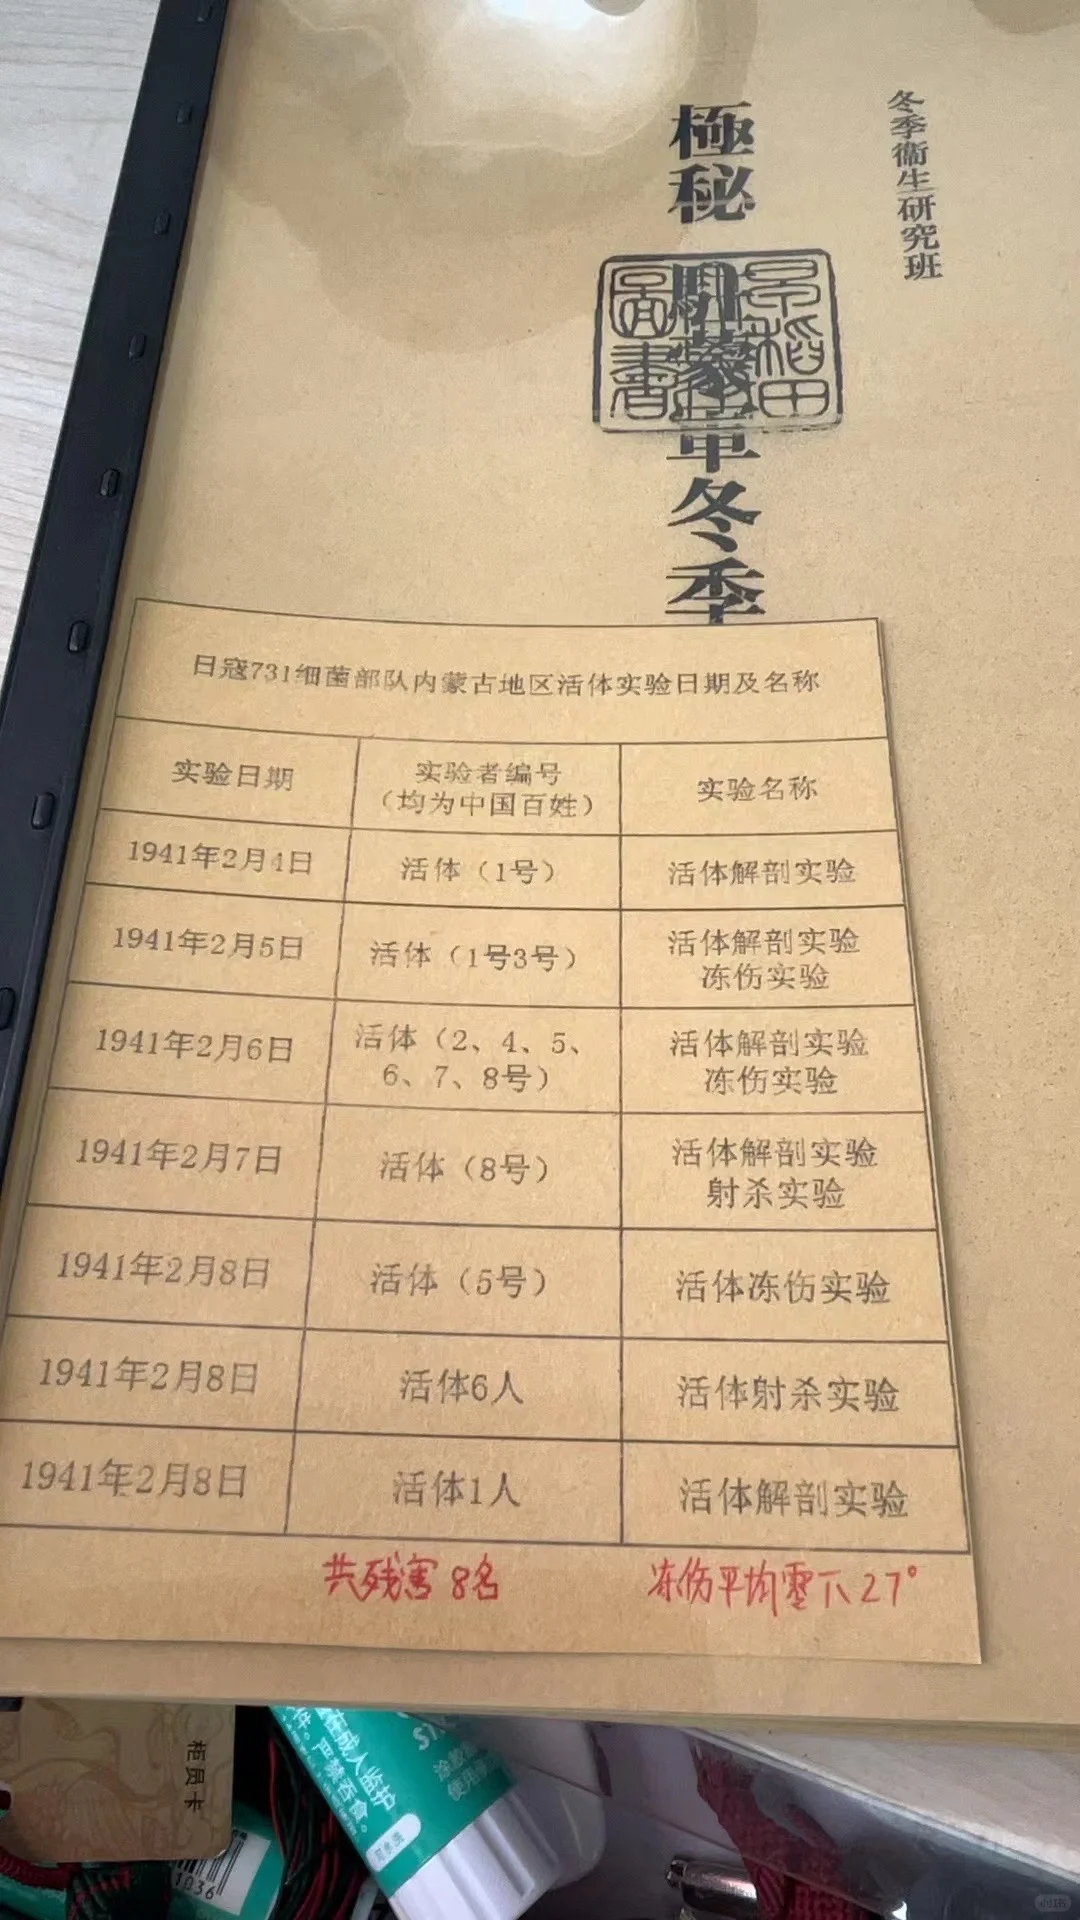 冬季衞生研究班
極秘
駐蒙軍冬季
稻田
圖書
日寇731细菌部队内蒙古地区活体实验日期及名称
实验日期
实验者编号
（均为中国百姓）
实验名称
1941年2月4日
活体（1号）
活体解剖实验
1941年2月5日
活体（1号3号）
活体解剖实验
冻伤实验
1941年2月6日
活体（2、4、5、
6、7、8号）
活体解剖实验
冻伤实验
1941年2月7日
活体（8号）
活体解剖实验
射杀实验
1941年2月8日
活体（5号）
活体冻伤实验
1941年2月8日
活体6人
活体射杀实验
1941年2月8日
活体1人
活体解剖实验
共残害8名
冻伤平均零下27°
柜员卡
在成人监护
严禁吞食。
涂胶
使用
1036
小红书